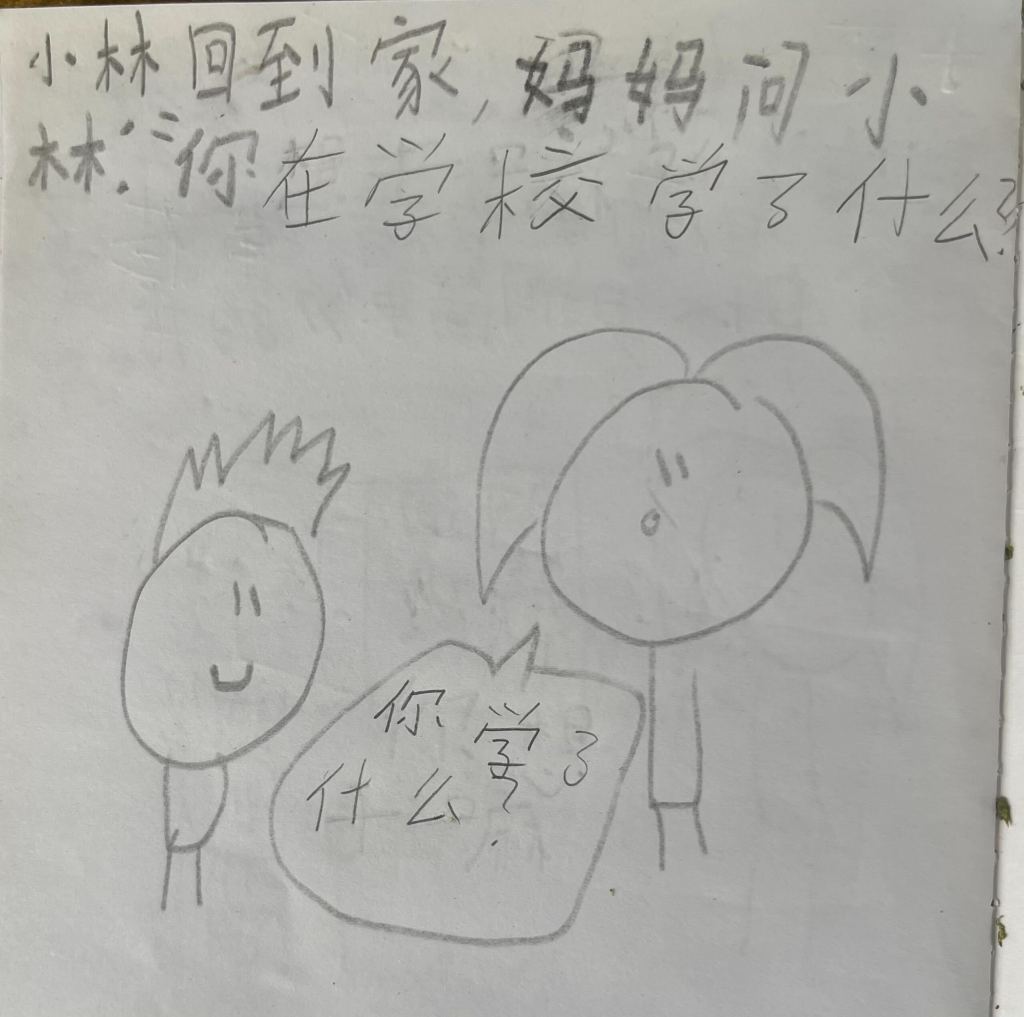 小林回到家,妈妈问小
林:“你在学校学了什么?
你学了
什么?